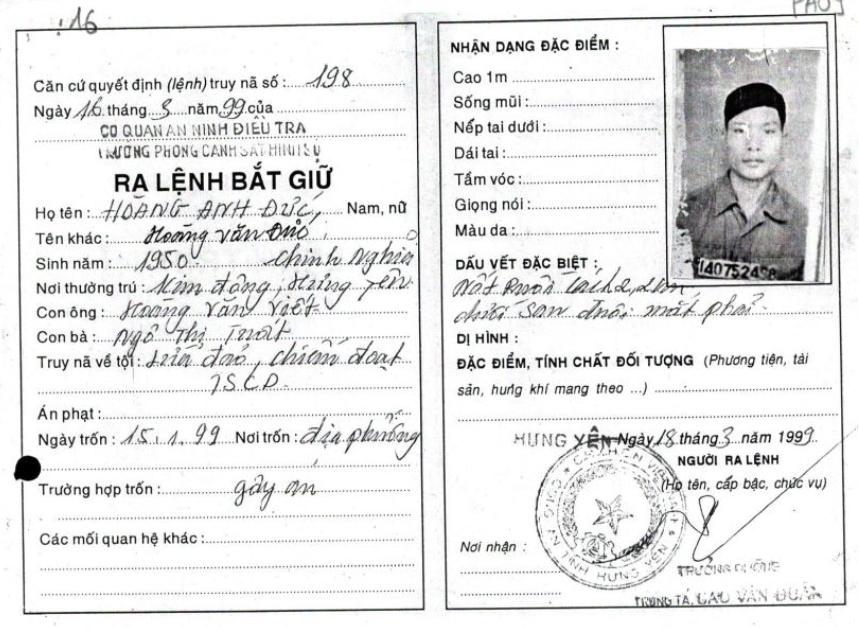 :16
Căn cứ quyết định (lệnh) truy nã số : 198
Ngày 16 tháng 3 năm 99 của
CƠ QUAN AN NINH ĐIỀU TRA
TRƯỞNG PHÒNG CẢNH SÁT HÌNH SỰ
RA LỆNH BẮT GIỮ
Họ tên : HOÀNG ANH ĐỨC, Nam, nữ
Tên khác : Hoàng văn
Sinh năm : 1950 - Chính Nghĩa
Nơi thường trú : Kim động, Hưng Yên
Con ông : Hoàng Văn Viết
Con bà : Ngô Thị
Truy nã về tội : Lừa đảo, chiếm đoạt
TSCD.
Án phạt :
Ngày trốn : 15.1.99 Nơi trốn : địa phương
Trường hợp trốn : gây án
Các mối quan hệ khác :
NHẬN DẠNG ĐẶC ĐIỂM :
Cao 1m
Sống mũi :
Nếp tai dưới :
Dái tai :
Tầm vóc :
Giọng nói :
Màu da :
DẤU VẾT ĐẶC BIỆT :
Nốt ruồi cách 2,
dưới sau đuôi mắt phải.
DỊ HÌNH :
ĐẶC ĐIỂM, TÍNH CHẤT ĐỐI TƯỢNG (Phương tiện, tài
sản, hung khí mang theo ...)
HƯNG YÊN Ngày 18 tháng 3 năm 1999
NGƯỜI RA LỆNH
(Họ tên, cấp bậc, chức vụ)
Nơi nhận :
CÔNG AN TỈNH HƯNG YÊN
TRƯỞNG PHÒNG
TRUNG TÁ, CAO VĂN